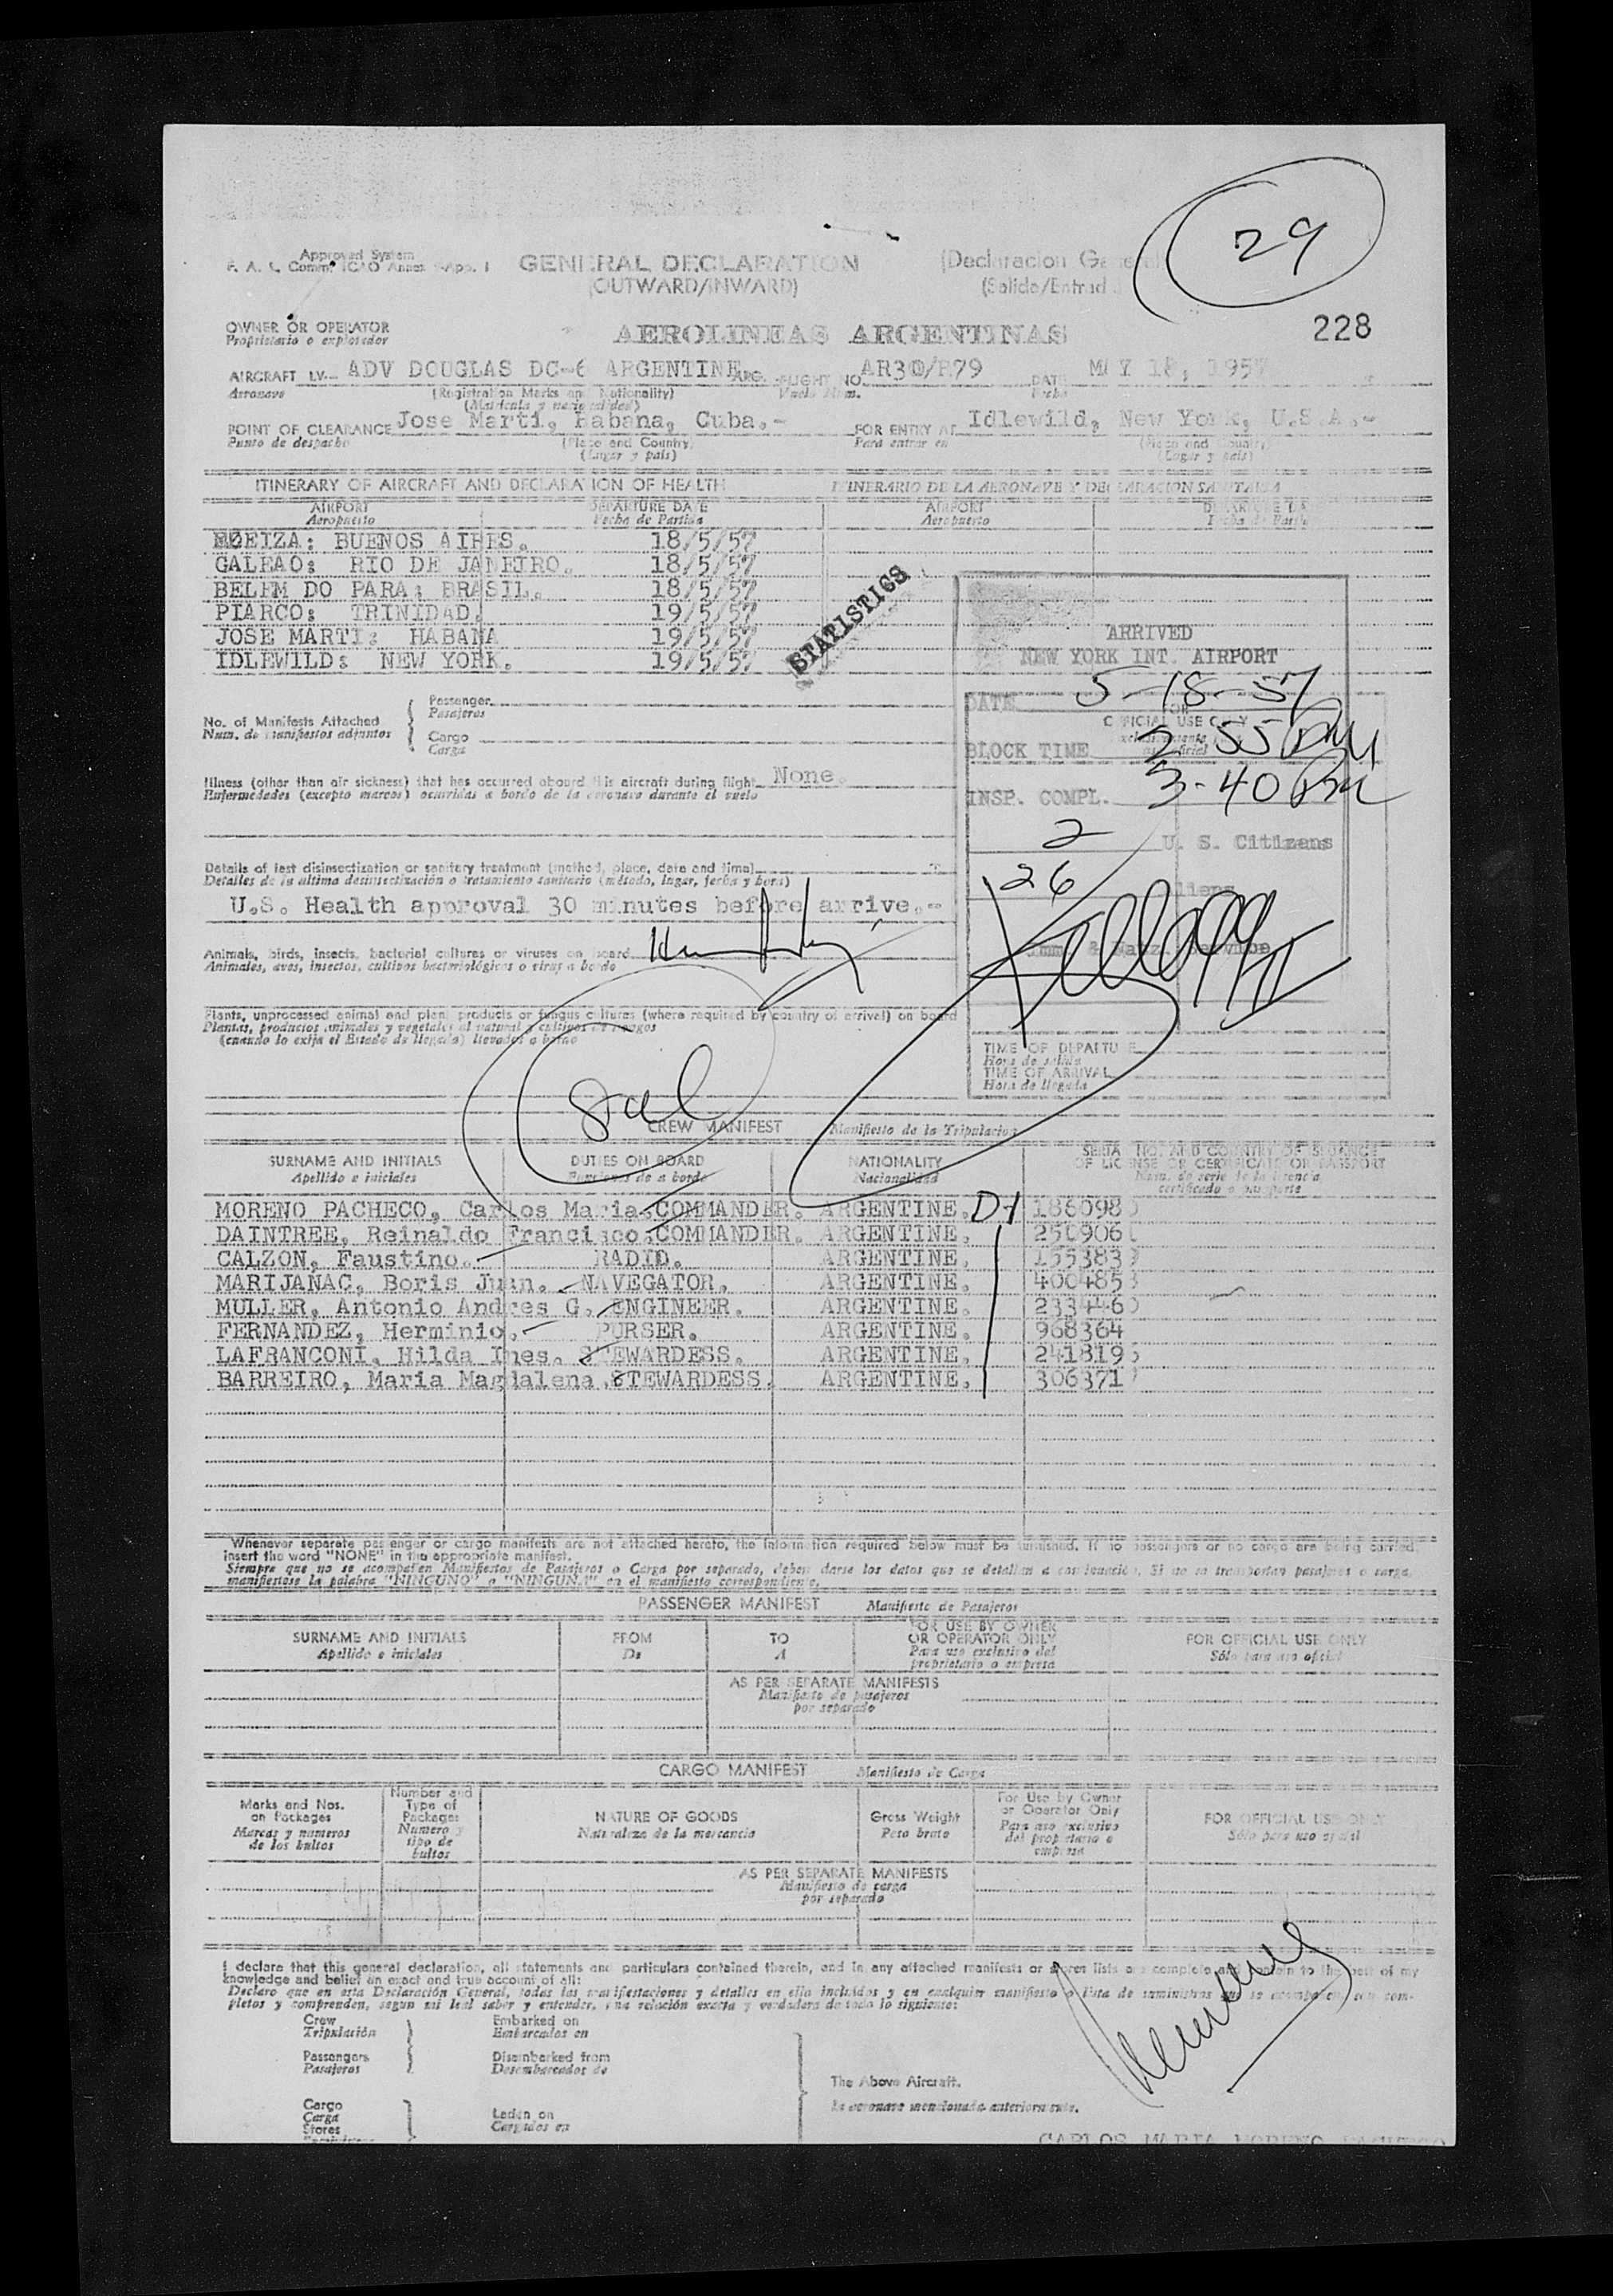 29
Approved System
F. A. L. Comm. ICAO Annex 9-App. 1
GENERAL DECLARATION
(OUTWARD/INWARD)
(Declaracion General
(Salida/Entrad
228
OWNER OR OPERATOR
Proprietario o explotador
AEROLINEAS ARGENTINAS
AIRCRAFT LV- ADV DOUGLAS DC-6 ARGENTINE ARG. FLIGHT NO. AR30/R79 DATE MAY 18, 1957
Aeronave (Registration Marks and Nationality) Vuelo Núm. Fecha
(Matrícula y nacionalidad)
POINT OF CLEARANCE Jose Marti, Habana, Cuba.- FOR ENTRY AT Idlewild, New York, U.S.A.-
Punto de despacho (Place and Country) Para entrar en (Place and Country)
(Lugar y país) (Lugar y país)
ITINERARY OF AIRCRAFT AND DECLARATION OF HEALTH ITINERARIO DE LA AERONAVE Y DECLARACION SANITARIA
AIRPORT DEPARTURE DATE AIRPORT DEPARTURE DA
Aeropuerto Fecha de Partida Aeropuerto Fecha de Partid
EZEIZA: BUENOS AIRES. 18/5/57
GALEAO: RIO DE JANEIRO. 18/5/57
BELEM DO PARA: BRASIL. 18/5/57
PIARCO: TRINIDAD. 19/5/57
JOSE MARTI: HABANA 19/5/57
IDLEWILD: NEW YORK. 19/5/57
STATISTICS
ARRIVED
NEW YORK INT. AIRPORT
DATE 5-18-57
FOR
OFFICIAL USE ONLY
BLOCK TIME 2 55 PM
INSP. COMPL. 3-40 PM
2 U. S. Citizens
26 Aliens
Imm. & Natz. Service
No. of Manifests Attached
Num. de manifiestos adjuntos
Passenger
Pasajeros
Cargo
Carga
Illness (other than air sickness) that has occurred aboard this aircraft during flight None.
Enfermedades (excepto mareos) ocurridas a bordo de la aeronave durante el vuelo
Details of last disinsectization or sanitary treatment (method, place, date and time)
Detalles de la ultima desinsectización o tratamiento sanitario (método, lugar, fecha y hora)
U.S. Health approval 30 minutes before arrive.-
Animals, birds, insects, bacterial cultures or viruses on board
Animales, aves, insectos, cultivos bacteriológicos o virus a bordo
Plants, unprocessed animal and plant products or fungus cultures (where required by country of arrival) on board
Plantas, productos animales y vegetales al natural y cultivos de hongos
(cuando lo exija el Estado de llegada) llevados a bordo
TIME OF DEPARTURE
Hora de salida
TIME OF ARRIVAL
Hora de llegada
CREW MANIFEST Manifiesto de la Tripulacion
SURNAME AND INITIALS DUTIES ON BOARD NATIONALITY SERIAL NO. AND COUNTRY OF ISSUANCE
Apellido e iniciales Funciones de a bordo Nacionalidad OF LICENSE OR CERTIFICATE OR PASSPORT
Num. de serie de la licencia
certificado o pasaporte
MORENO PACHECO, Carlos Maria. COMMANDER. ARGENTINE. D1 186098
DAINTREE, Reinaldo Francisco. COMMANDER. ARGENTINE. 250906
CALZON, Faustino. RADIO. ARGENTINE. 155383
MARIJANAC, Boris Juan. NAVEGATOR. ARGENTINE. 400485
MULLER, Antonio Andres G. ENGINEER. ARGENTINE. 233446
FERNANDEZ, Herminio. PURSER. ARGENTINE. 968364
LAFRANCONI, Hilda Ines. STEWARDESS. ARGENTINE. 241819
BARREIRO, Maria Magdalena. STEWARDESS. ARGENTINE. 306371
Whenever separate passenger or cargo manifests are not attached hereto, the information required below must be furnished. If no passengers or no cargo are being carried
insert the word "NONE" in the appropriate manifest.
Siempre que no se acompañen Manifiestos de Pasajeros o Carga por separado, deben darse los datos que se detallan a continuación. Si no se transportan pasajeros o carga,
manifiestese la palabra "NINGUNO" o "NINGUNA" en el manifiesto correspondiente.
PASSENGER MANIFEST Manifiesto de Pasajeros
SURNAME AND INITIALS FROM TO FOR USE BY OWNER OR OPERATOR ONLY FOR OFFICIAL USE ONLY
Apellido e iniciales De A Para uso exclusivo del propietario o empresa Sólo para uso oficial
AS PER SEPARATE MANIFESTS
Manifiesto de pasajeros
por separado
CARGO MANIFEST Manifiesto de Carga
Marks and Nos. on Packages Number and Type of Packages NATURE OF GOODS Gross Weight For Use by Owner or Operator Only FOR OFFICIAL USE ONLY
Marcas y numeros de los bultos Numero y tipo de bultos Naturaleza de la mercancia Peso bruto Para uso exclusivo del propietario o empresa Sólo para uso oficial
AS PER SEPARATE MANIFESTS
Manifiesto de carga
por separado
I declare that this general declaration, all statements and particulars contained therein, and in any attached manifests or stores lists are complete and contain to the best of my
knowledge and belief an exact and true account of all:
Declaro que en esta Declaración General, todas las manifestaciones y detalles en ella incluidos y en cualquier manifiesto o lista de suministros que se acompañen, son com-
pletos y comprenden, segun mi leal saber y entender, una relación exacta y verdadera de todo lo siguiente:
Crew Embarked on
Tripulación Embarcados en
Passengers Disembarked from
Pasajeros Desembarcados de
The Above Aircraft.
La aeronave mencionada anteriormente.
Cargo
Carga Laden on
Stores Cargados en
CARLOS MARIA MORENO PACHECO